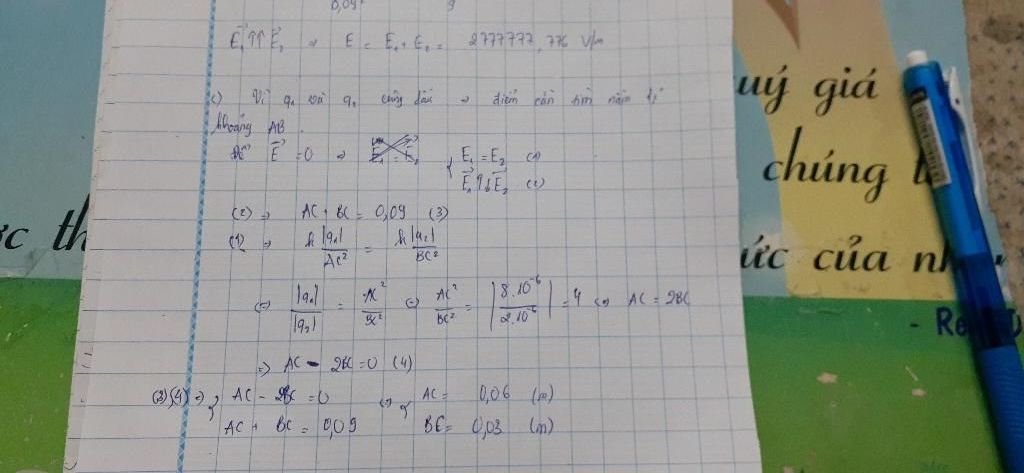 0,09²
9
E₁⃗ ↑↑ E₂⃗ ⇒ E = E₁ + E₂ = 2777777,776 V/m
c) Vì q₁ và q₂ cùng dấu → điểm cần tìm nằm
khoảng AB
Để E⃗ = 0 ⇒ { E₁ = E₂ (1)
E₁⃗ ↑↓ E₂⃗ (2)
(2) ⇒ AC + BC = 0,09 (3)
(1) ⇒ k |q₁| / AC² = k |q₂| / BC²
⇔ |q₁| / |q₂| = AC² / BC² ⇔ AC² / BC² = | 8.10⁻⁶ / 2.10⁻⁶ | = 4 ⇔ AC = 2BC
⇒ AC - 2BC = 0 (4)
(3)(4) ⇒ { AC - 2BC = 0 ⇔ { AC = 0,06 (m)
AC + BC = 0,09 BC = 0,03 (m)
uý giá
chúng t
ức của nh
ực th
- Re